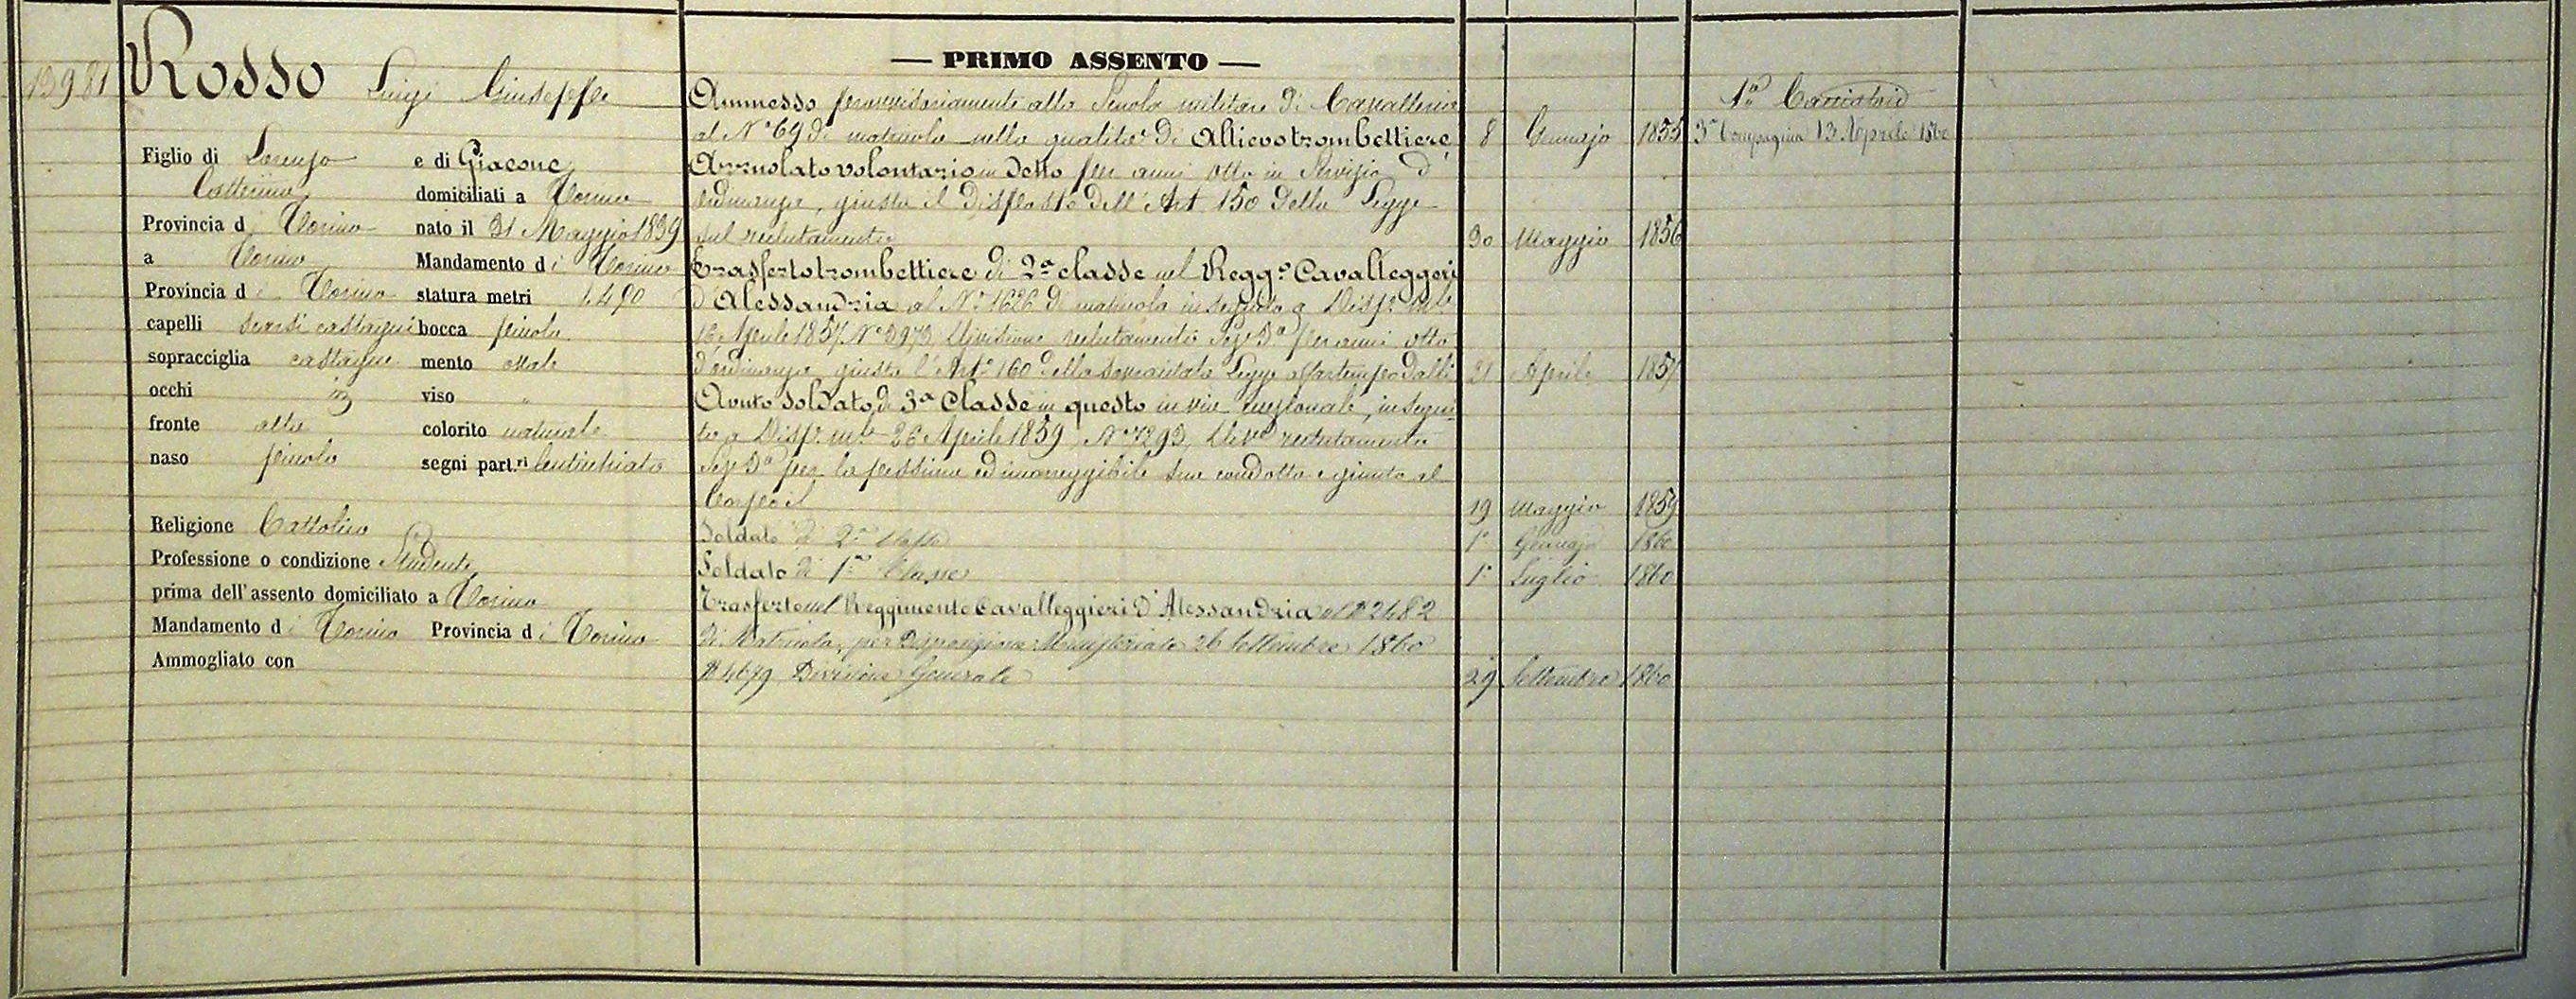 13981
Rosso Luigi Giuseppe
Figlio di Lorenzo e di Giacone
Catterina domiciliati a Torino
Provincia di Torino nato il 31 Maggio 1839
a Torino Mandamento di Torino
Provincia di Torino statura metri 1.490
capelli scarsi castagni bocca piccola
sopracciglia castagne mento ovale
occhi id viso "
fronte alta colorito naturale
naso piccolo segni part.ri Lentichiato
Religione Cattolica
Professione o condizione Studente
prima dell'assento domiciliato a Torino
Mandamento di Torino Provincia di Torino
Ammogliato con
— PRIMO ASSENTO —
Ammesso provvisoriamente alla Scuola militare di Cavalleria
al N° 69 di matricola nella qualità di Allievo trombettiere 8 Gennajo 1855
Arruolato volontario in detto per anni otto in Servizio d'
ordinanza, giusta il disposto dell'Art 150 della Legge
sul reclutamento 30 Maggio 1856
Trasferto trombettiere di 2a classe nel Regg.o Cavalleggeri
d'Alessandria al N° 1626 di matricola in seguito a Disp. mle
16 Aprile 1857 N° 3973 Divisione reclutamento Sez 3a per anni otto
d'ordinanza giusta l'Art° 160 della sovracitata Legge a partempo dalli 21 Aprile 1857
Avuto soldato di 3a Classe in questo in via eccezionale, in segui-
to a Disp. mle 26 Aprile 1859 N° 7293, reclutamento
Sez 3a per la pessima ed incorreggibile sua condotta e giunto al
Corpo il 19 Maggio 1859
Soldato di 2a classe 1° Gennajo 1860
Soldato di 1a Classe 1° Luglio 1860
Trasferto nel Reggimento Cavalleggieri D'Alessandria al N 2482
di Matricola, per Disposizione Ministeriale 26 Settembre 1860
N 4679 Divisione Generale 29 Settembre 1860
1a Cacciatori
3a Compagnia 13 Aprile 1860